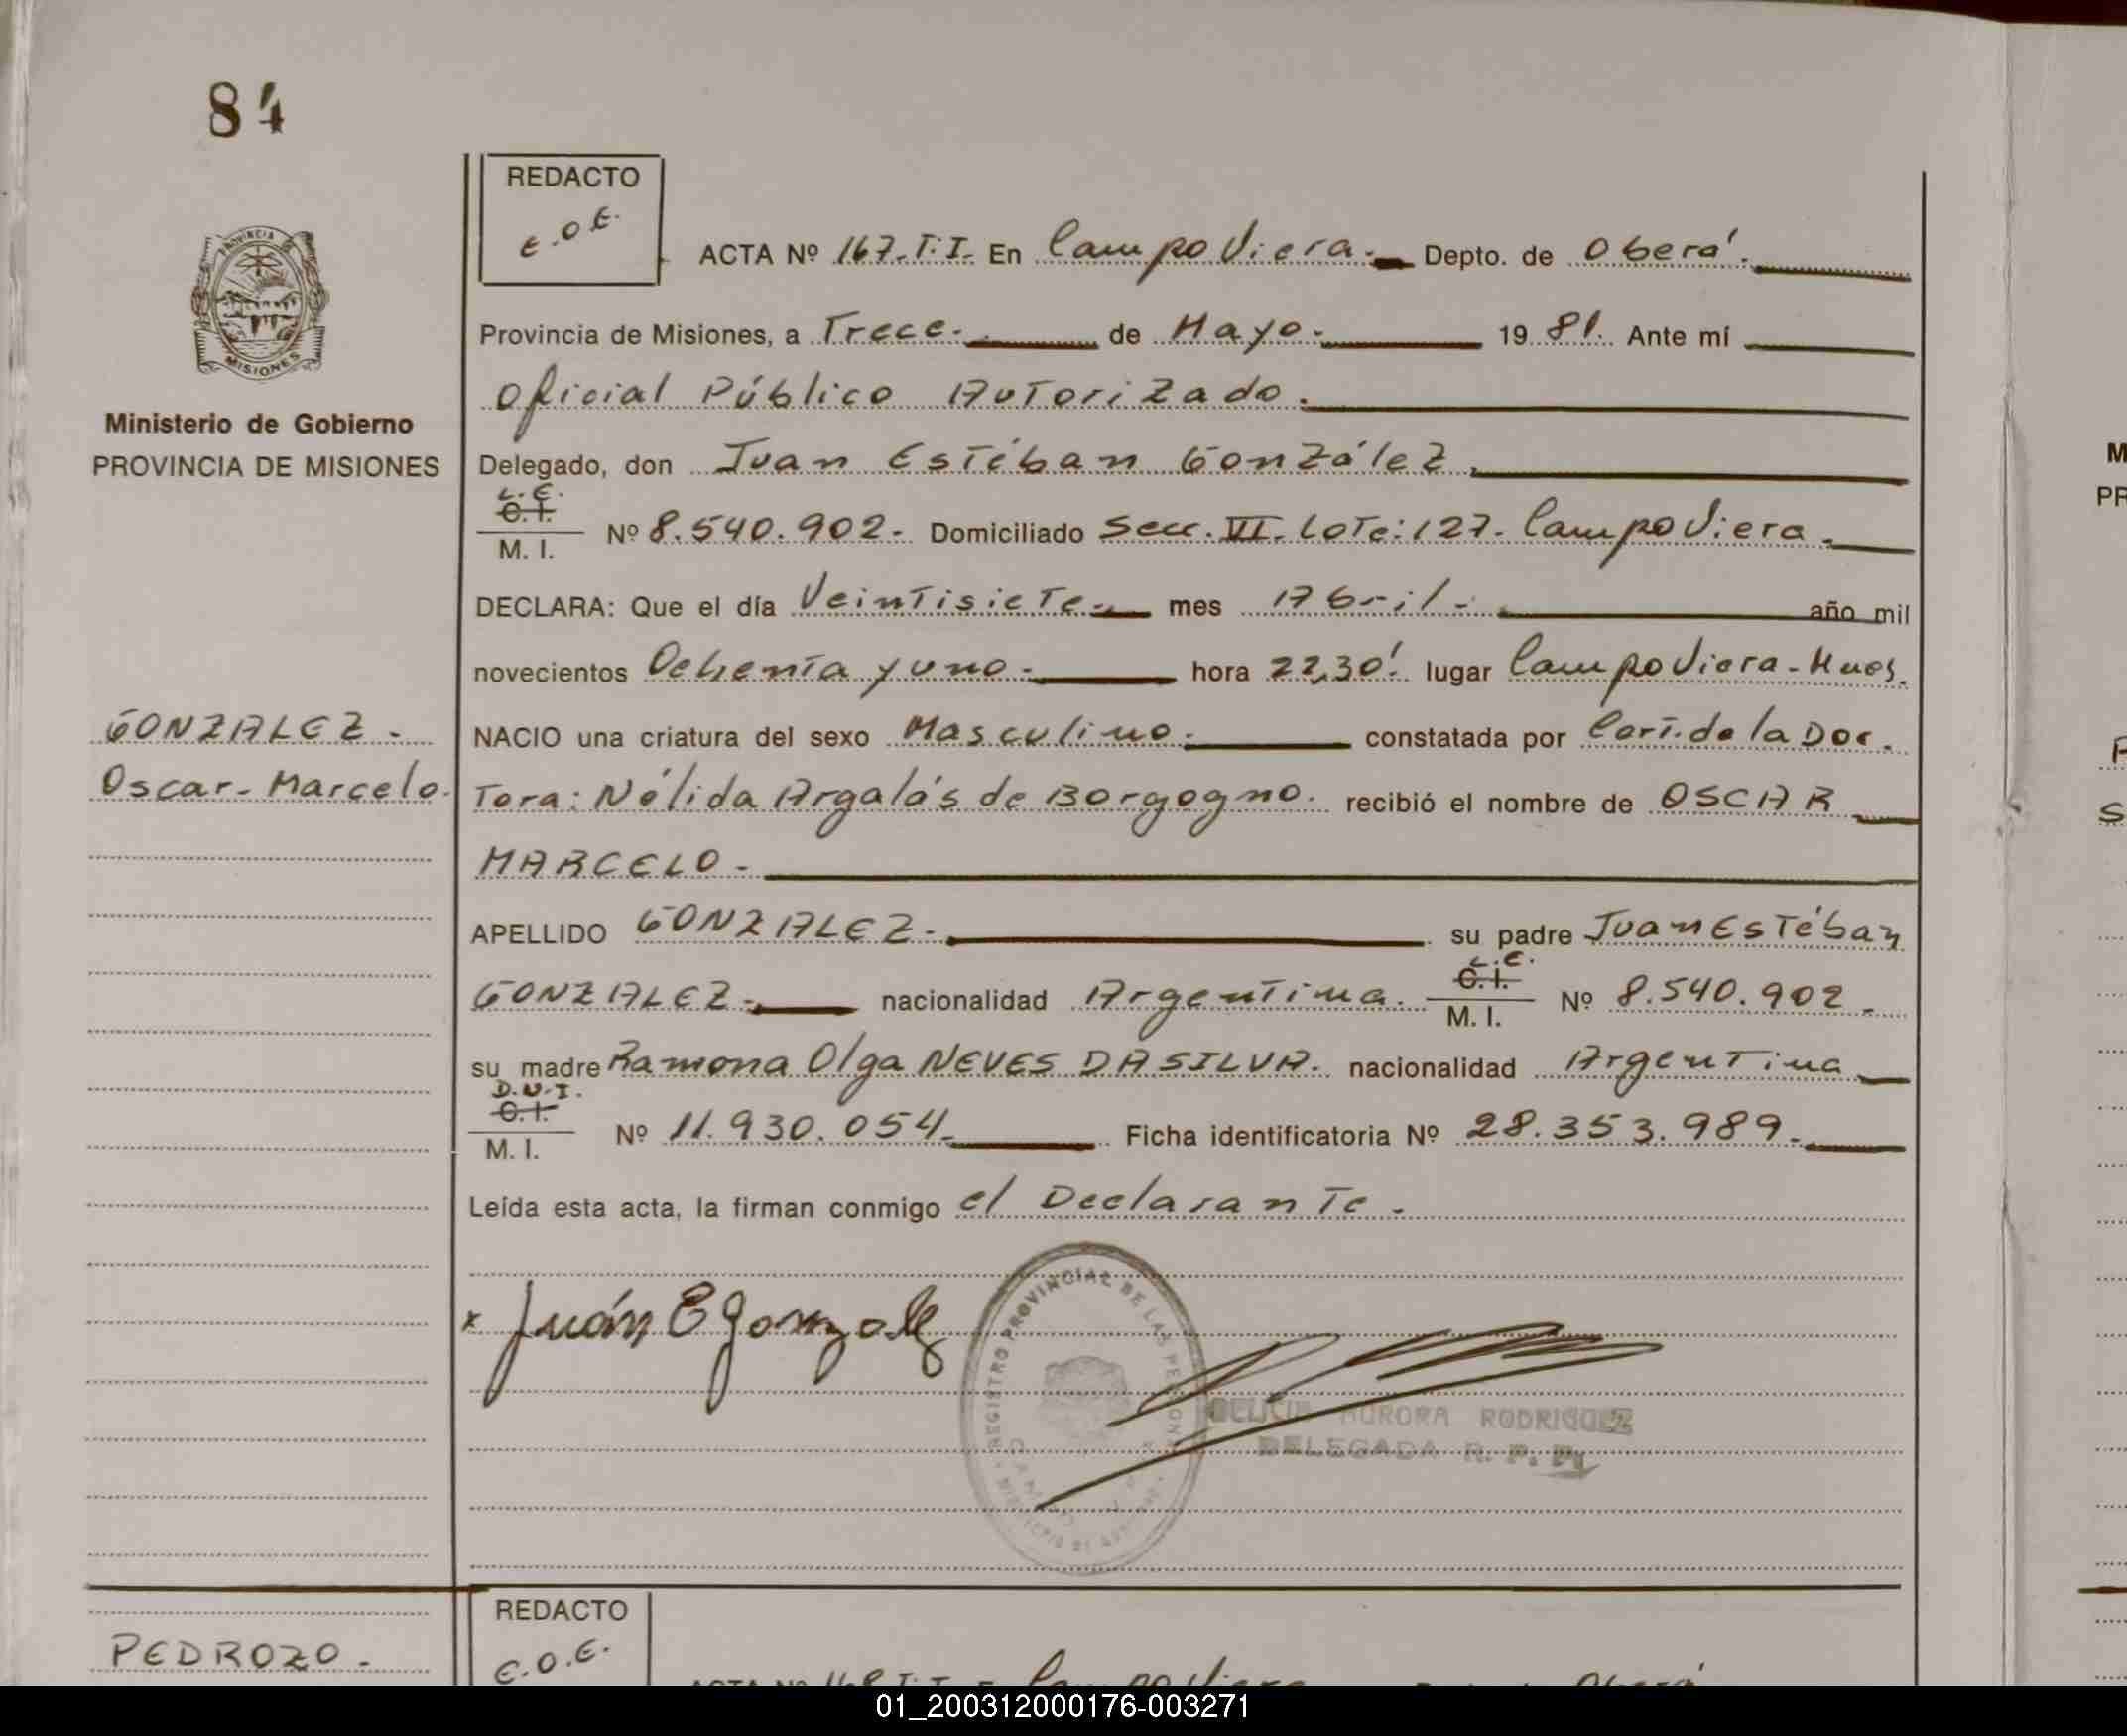 84
REDACTO
E.O.E.
PROVINCIA
MISIONES
Ministerio de Gobierno
PROVINCIA DE MISIONES
ACTA Nº 167.T.I. En Campo Viera.- Depto. de Oberá.
Provincia de Misiones, a Trece. de Mayo. 19 81. Ante mí
Oficial Público Autorizado.
Delegado, don Juan Estéban González.
L.E.
C.I.
M.I. Nº 8.540.902.- Domiciliado Secc. VI. Lote: 127. Campo Viera.
DECLARA: Que el día Veintisiete.- mes Abril.- año mil
novecientos Ochenta y uno.- hora 22,30' lugar Campo Viera - Mnes.
NACIO una criatura del sexo Masculino. constatada por Cert. de la Doc.
GONZALEZ.-
Oscar-Marcelo.
tora: Nélida Argalás de Borgogno. recibió el nombre de OSCAR
MARCELO.-
APELLIDO GONZALEZ.- su padre Juan Estéban
GONZALEZ.- nacionalidad Argentina. L.E.
C.I.
M.I. Nº 8.540.902.
su madre Ramona Olga NEVES DASILVA. nacionalidad Argentina
D.U.I.
C.I.
M.I. Nº 11.930.054.- Ficha identificatoria Nº 28.353.989.-
Leída esta acta, la firman conmigo el Declarante.
x Juán E Gonzalez
REGISTRO PROVINCIAL DE LAS PERSONAS
AURORA RODRIGUEZ
DELEGADA R. P. P.
PEDROZO.-
REDACTO
E.O.E.
ACTA Nº 168 T.I. En Campo Viera Oberá
01_200312000176-003271